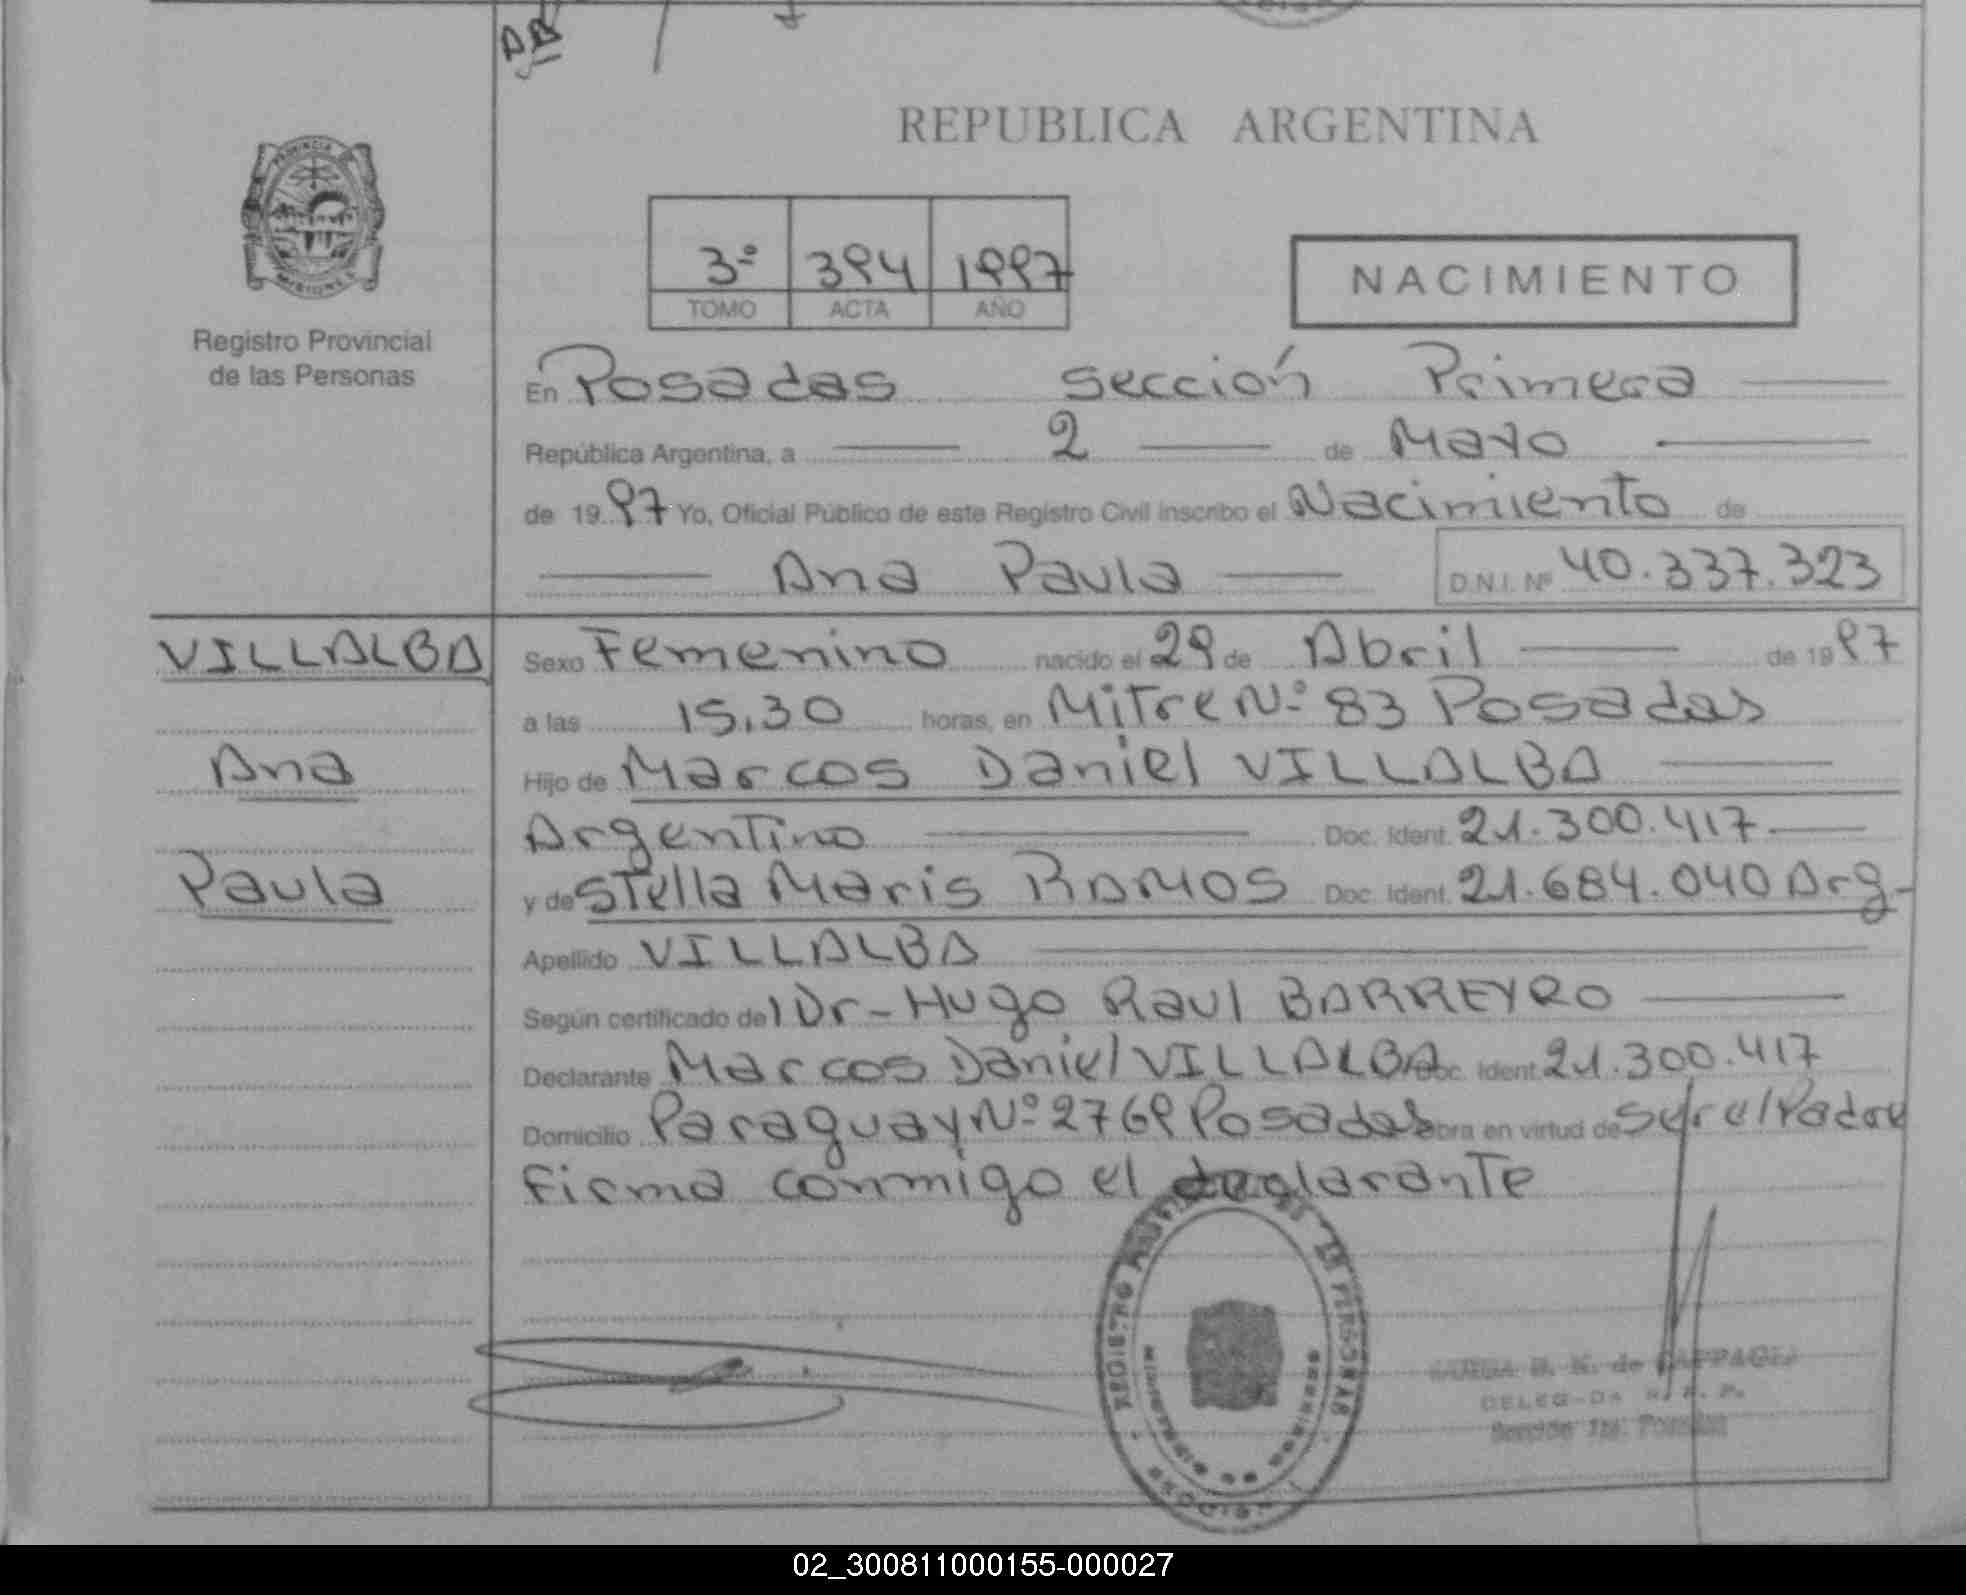 DB
REPUBLICA ARGENTINA
PROVINCIA
MISIONES
Registro Provincial
de las Personas
3º 394 1997
TOMO ACTA AÑO
NACIMIENTO
En Posadas sección Primera
República Argentina, a 2 de Mayo
de 1997 Yo, Oficial Público de este Registro Civil inscribo el Nacimiento de
Ana Paula D.N.I. Nº 40.337.323
VILLALBA
Ana
Paula
Sexo Femenino nacido el 29 de Abril de 1997
a las 15,30 horas, en Mitre Nº 83 Posadas
Hijo de Marcos Daniel VILLALBA
Argentino Doc. Ident. 21.300.417
y de Stella Maris RAMOS Doc. Ident. 21.684.040 Arg-
Apellido VILLALBA
Según certificado del Dr- Hugo Raul BARREYRO
Declarante Marcos Daniel VILLALBA Doc. Ident. 21.300.417
Domicilio Paraguay Nº 2769 Posadas obra en virtud de Ser el Padre
Firma conmigo el declarante
REGISTRO DE PERSONAS
MINISTERIO DE GOBIERNO
MISIONES
de CAPPAGLI
DELEGADA R. P. P.
Sección 1ra. Posadas
02_300811000155-000027